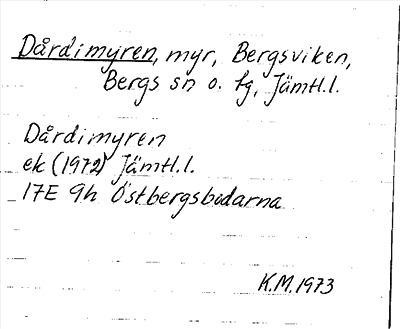 Dårdimyren, myr, Bergsviken,
Bergs sn o. tg, Jämtl.l.
Dårdimyren
ek (1972) Jämtl.l.
17E 9h Östbergsbodarna
K.M. 1973